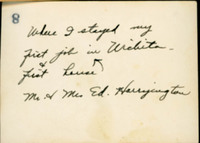 8
Where I stayed my
first job in Wichita -
& first house
Mr & Mrs Ed. Harrington